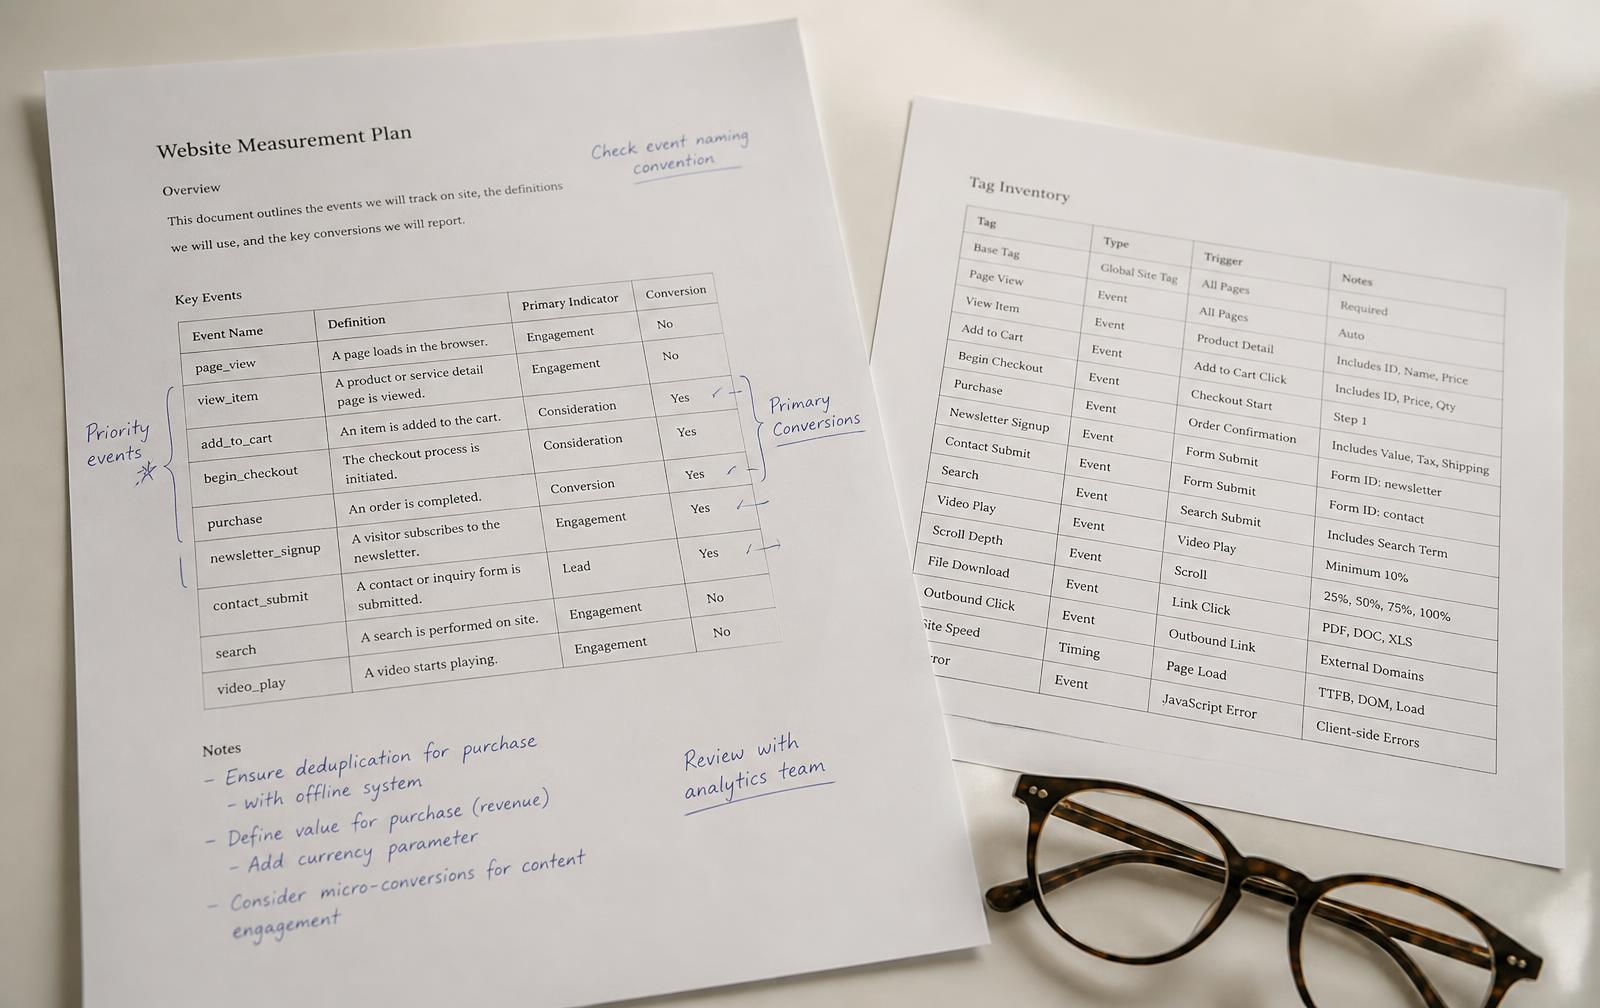 Website Measurement Plan
Check event naming
convention
Overview
This document outlines the events we will track on site, the definitions
we will use, and the key conversions we will report.
Key Events
Event Name Definition Primary Indicator Conversion
page_view A page loads in the browser. Engagement No
view_item A product or service detail Engagement No
page is viewed.
add_to_cart An item is added to the cart. Consideration Yes
begin_checkout The checkout process is Consideration Yes
initiated.
purchase An order is completed. Conversion Yes
newsletter_signup A visitor subscribes to the Engagement Yes
newsletter.
contact_submit A contact or inquiry form is Lead Yes
submitted.
search A search is performed on site. Engagement No
video_play A video starts playing. Engagement No
Priority
events
Primary
Conversions
Notes
– Ensure deduplication for purchase
– with offline system
– Define value for purchase (revenue)
– Add currency parameter
– Consider micro-conversions for content
engagement
Review with
analytics team
Tag Inventory
Tag Type Trigger Notes
Base Tag Global Site Tag All Pages Required
Page View Event All Pages Auto
View Item Event Product Detail Includes ID, Name, Price
Add to Cart Event Add to Cart Click Includes ID, Price, Qty
Begin Checkout Event Checkout Start Step 1
Purchase Event Order Confirmation Includes Value, Tax, Shipping
Newsletter Signup Event Form Submit Form ID: newsletter
Contact Submit Event Form Submit Form ID: contact
Search Event Search Submit Includes Search Term
Video Play Event Video Play Minimum 10%
Scroll Depth Event Scroll 25%, 50%, 75%, 100%
File Download Event Link Click PDF, DOC, XLS
Outbound Click Event Outbound Link External Domains
Site Speed Timing Page Load TTFB, DOM, Load
rror Event JavaScript Error Client-side Errors